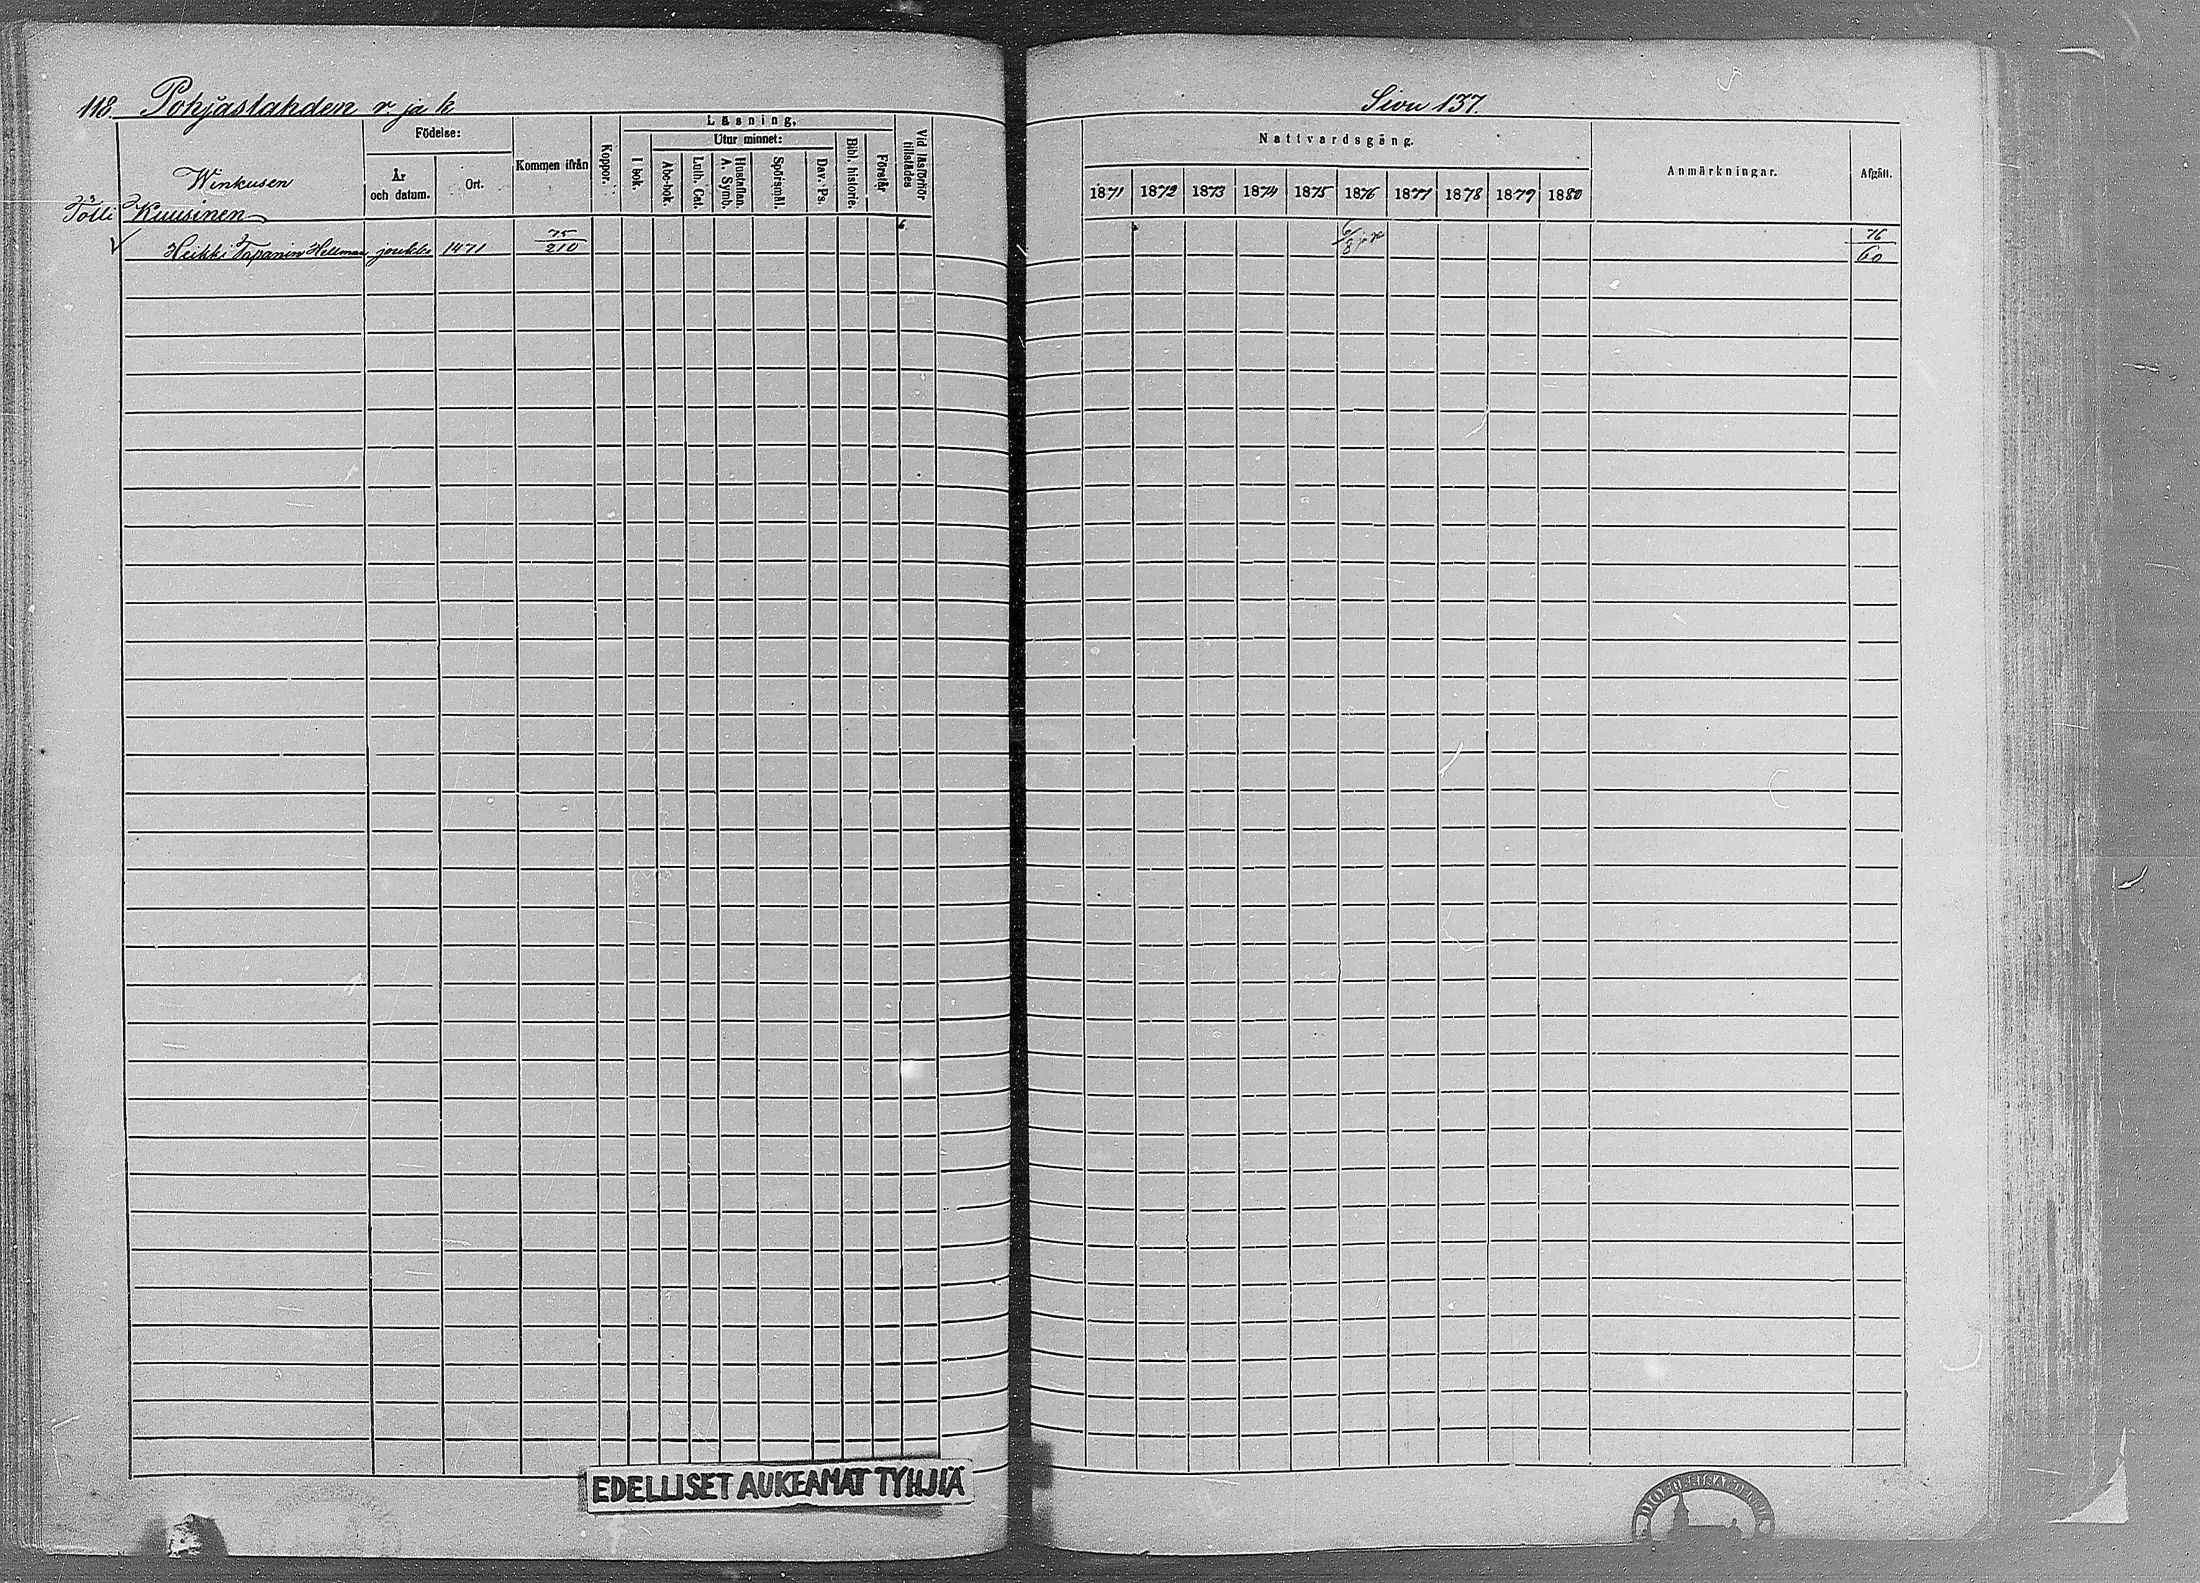 118. Pohjaslahden r. ja k
Födelse:
Kommen ifrån
Koppor.
Läsning.
Utur minnet:
I bok.
Abc-bok.
Luth. Cat.
Hustaflan. A. Symb.
Spörsmål.
Dav. Ps.
Bibl. historie.
Förstår
Vid läsförhör tillstädes
År och datum.
Ort.
Winkusen
Tölli Kuusinen
Heikki Tapanin Hellman joukko 1471 75/210
Sivu 137.
Nattvardsgång.
Anmärkningar.
Afgått.
1871 1872 1873 1874 1875 1876 1877 1878 1879 1880
6/8 76/60
EDELLISET AUKEAMAT TYHJIÄ